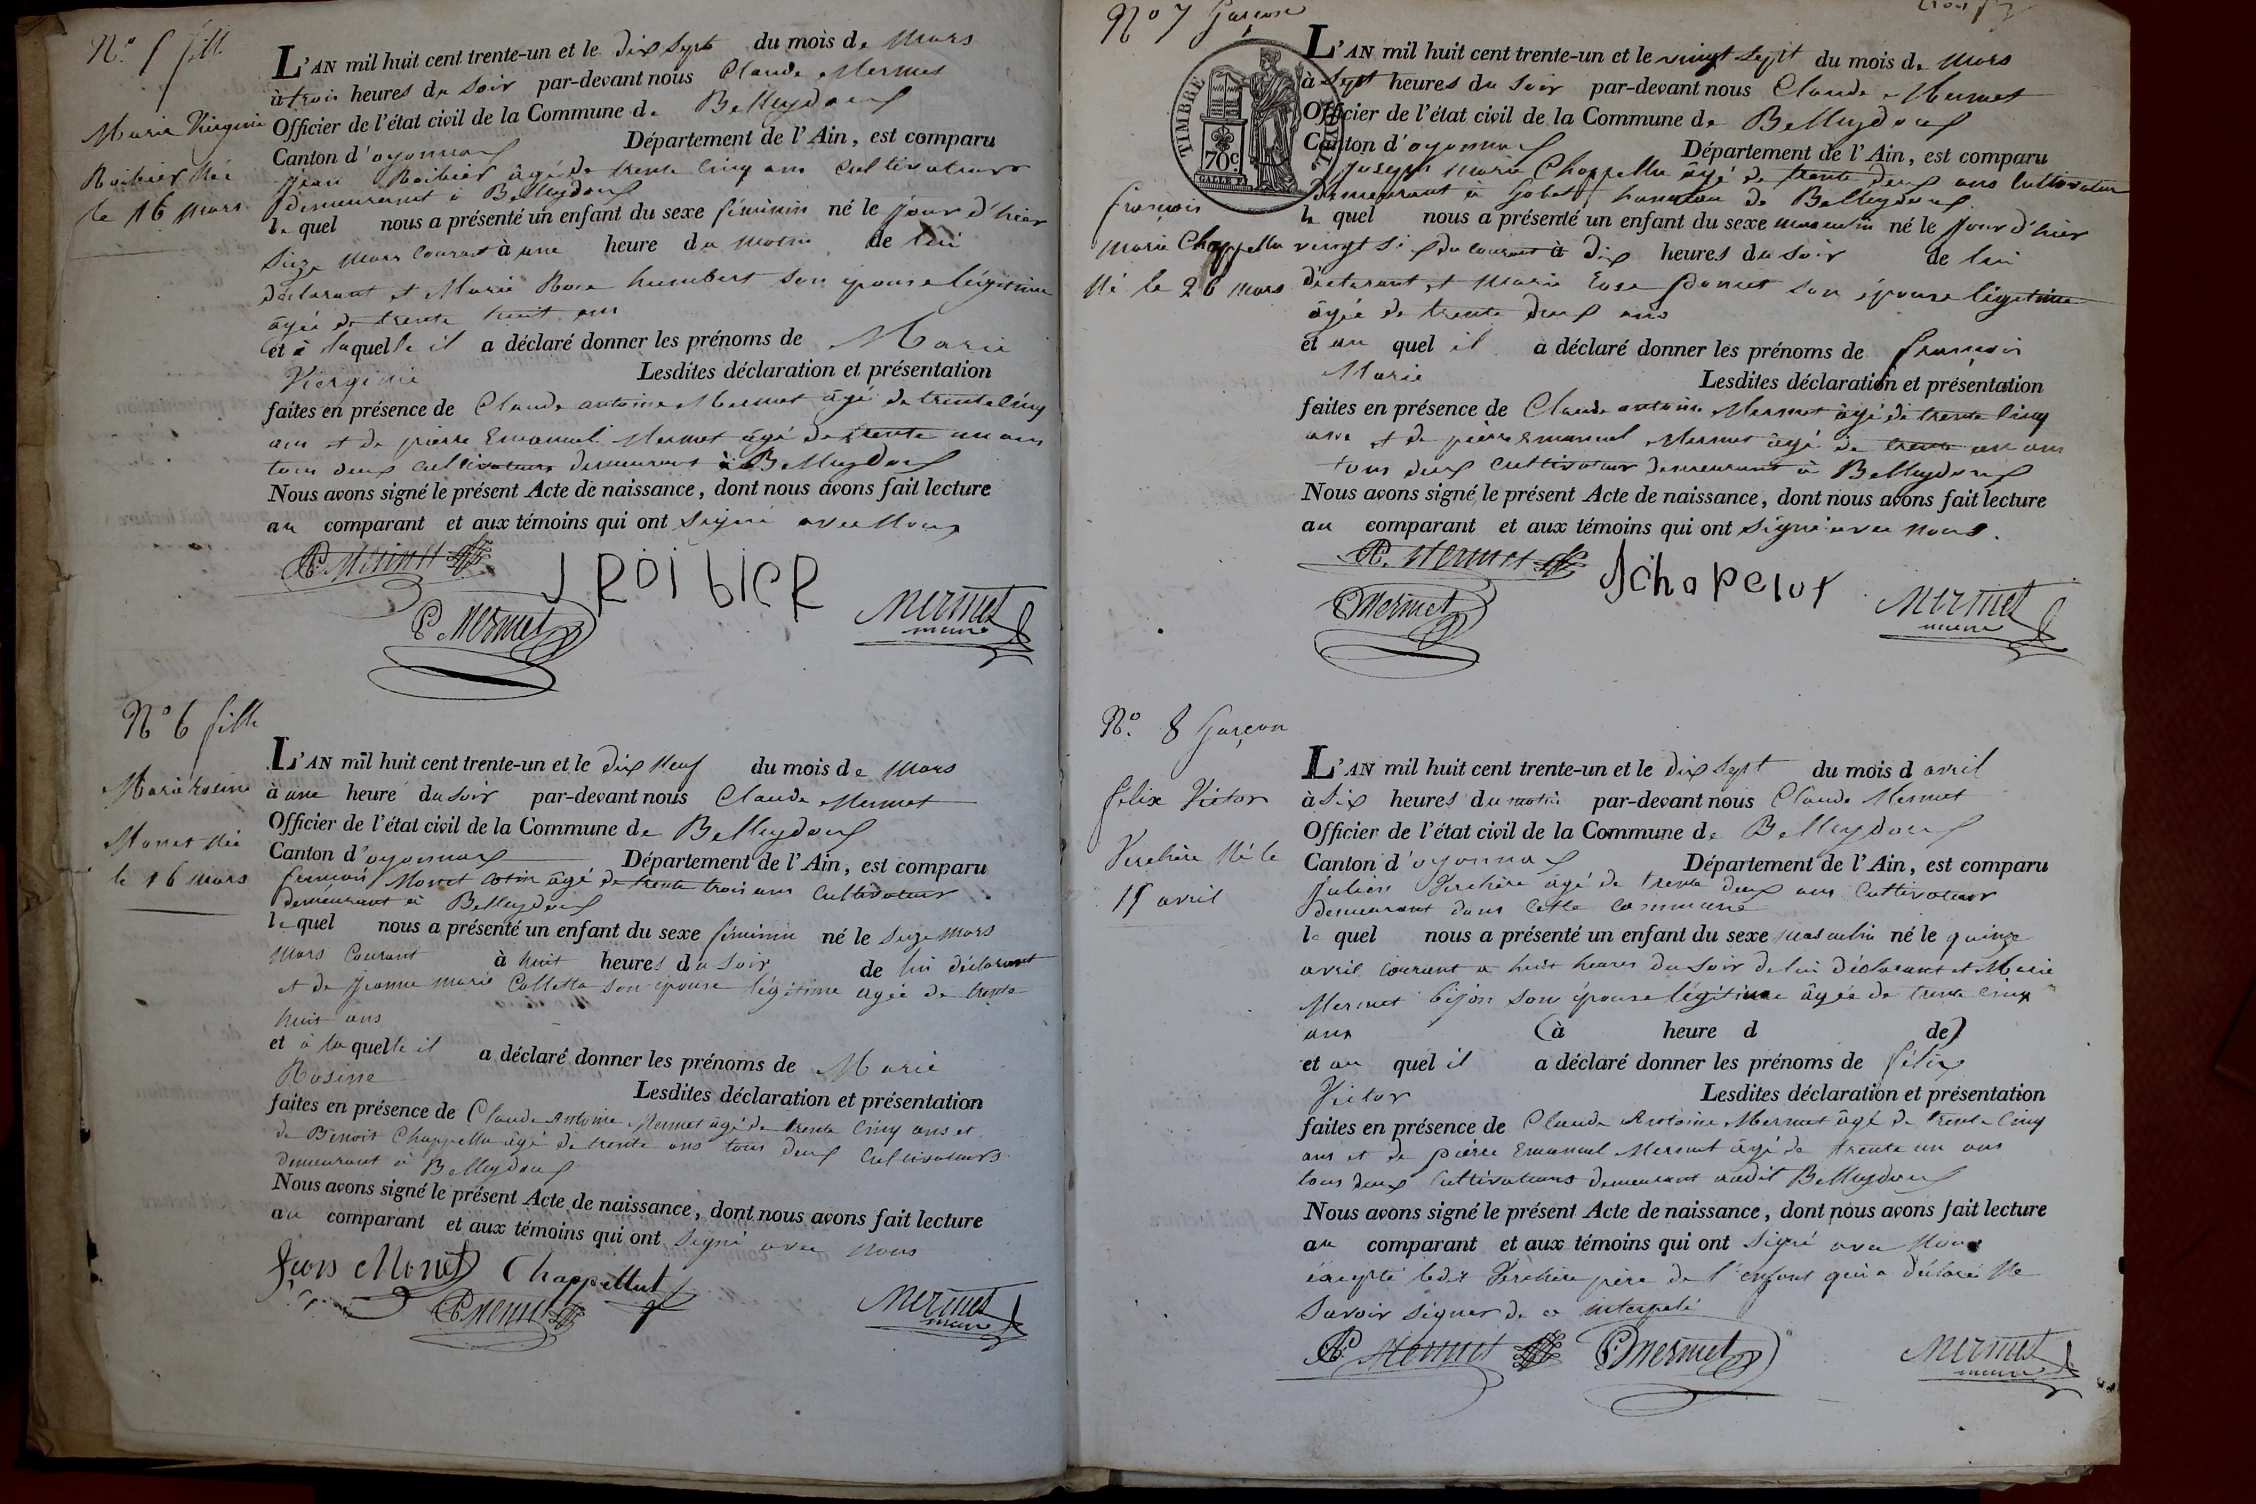 N.° 5 fille
Marie Virginie
Roibier Née
le 16 mars
L'AN mil huit cent trente-un et le dix sept du mois de Mars
à trois heures du soir par-devant nous Claude Mermet
Officier de l'état civil de la Commune de Belleydoux
Canton d'oyonnax Département de l'Ain, est comparu
Jean Roibier âgé de trente cinq ans cultivateur
demeurant à Belleydoux
le quel nous a présenté un enfant du sexe féminin né le jour d'hier
seize mars courant à une heure du matin de lui
déclarant et Marie Rose humbert son épouse légitime
âgée de trente huit ans
et à laquelle il a déclaré donner les prénoms de Marie
Virginie Lesdites déclaration et présentation
faites en présence de Claude antoine Mermet âgé de trente cinq
ans et de pierre Emanuel Mermet âgé de trente un ans
tous deux cultivateurs demeurant à Belleydoux
Nous avons signé le présent Acte de naissance, dont nous avons fait lecture
au comparant et aux témoins qui ont signé avec Nous
J ROIbIER
P Mermet
Mermet
maire
N° 6 fille
Marie rosine
Monet Née
le 16 mars
L'AN mil huit cent trente-un et le dix Neuf du mois de Mars
à une heure du soir par-devant nous Claude Mermet
Officier de l'état civil de la Commune de Belleydoux
Canton d'oyonnax Département de l'Ain, est comparu
françois Monet âgé de trente trois ans cultivateur
demeurant à Belleydoux
le quel nous a présenté un enfant du sexe féminin né le seize mars
mars courant à huit heures du soir de lui déclarant
et de Jeanne marie Colletta son épouse légitime âgée de trente
huit ans
et à laquelle il a déclaré donner les prénoms de Marie
Rosine Lesdites déclaration et présentation
faites en présence de Claude Antoine Mermet âgé de trente cinq ans et
de Benoit Chappellu âgé de trente ans tous deux cultivateurs
demeurant à Belleydoux
Nous avons signé le présent Acte de naissance, dont nous avons fait lecture
au comparant et aux témoins qui ont signé avec nous
fçois Monet Chappellut
Mermet
maire
N° 7 Garçon
TIMBRE ROYAL
70c.
françois
marie Chappellu
Né le 26 mars
L'AN mil huit cent trente-un et le vingt sept du mois de Mars
à sept heures du soir par-devant nous Claude Mermet
Officier de l'état civil de la Commune de Belleydoux
Canton d'oyonnax Département de l'Ain, est comparu
Joseph marie Chappellu âgé de trente deux ans cultivateur
demeurant à Gobet hameau de Belleydoux
le quel nous a présenté un enfant du sexe masculin né le jour d'hier
vingt six du courant à dix heures du soir de lui
déclarant et marie Rose Poncet son épouse légitime
âgée de trente deux ans
et au quel il a déclaré donner les prénoms de françois
Marie Lesdites déclaration et présentation
faites en présence de Claude antoine Mermet âgé de trente cinq
ans et de pierre emanuel Mermet âgé de trente un ans
tous deux cultivateur demeurant à Belleydoux
Nous avons signé le présent Acte de naissance, dont nous avons fait lecture
au comparant et aux témoins qui ont signé avec nous.
A. Mermet
Jchapelut
P Mermet
Mermet
maire
N.° 8 Garçon
félix Victor
Verchère Né le
15 avril
L'AN mil huit cent trente-un et le dix sept du mois d avril
à six heures du matin par-devant nous Claude Mermet
Officier de l'état civil de la Commune de Belleydoux
Canton d'oyonnax Département de l'Ain, est comparu
Julien Verchère âgé de trente deux ans Cultivateur
demeurant dans cette commune
le quel nous a présenté un enfant du sexe masculin né le quinze
avril courant a huit heures du soir de lui déclarant et Marie
Mermet bijon son épouse légitime âgée de trente cinq
ans (à heure d de)
et au quel il a déclaré donner les prénoms de félix
Victor Lesdites déclaration et présentation
faites en présence de Claude Antoine Mermet âgé de trente cinq
ans et de pierre Emanuel Mermet âgé de trente un ans
tous deux cultivateurs demeurant audit Belleydoux
Nous avons signé le présent Acte de naissance, dont nous avons fait lecture
au comparant et aux témoins qui ont signé avec Nous
éxcepté ledit Verchère père de l'enfant qui a déclaré Ne
savoir signer de ce interpelé
Mermet P Mermet Mermet
maire